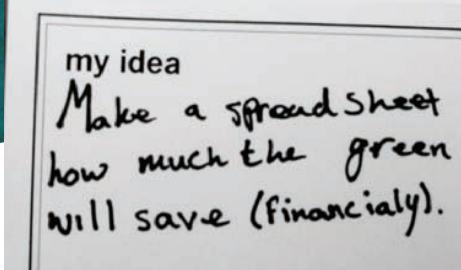 my idea
Make a spreadsheet
how much the green
will save (financialy).